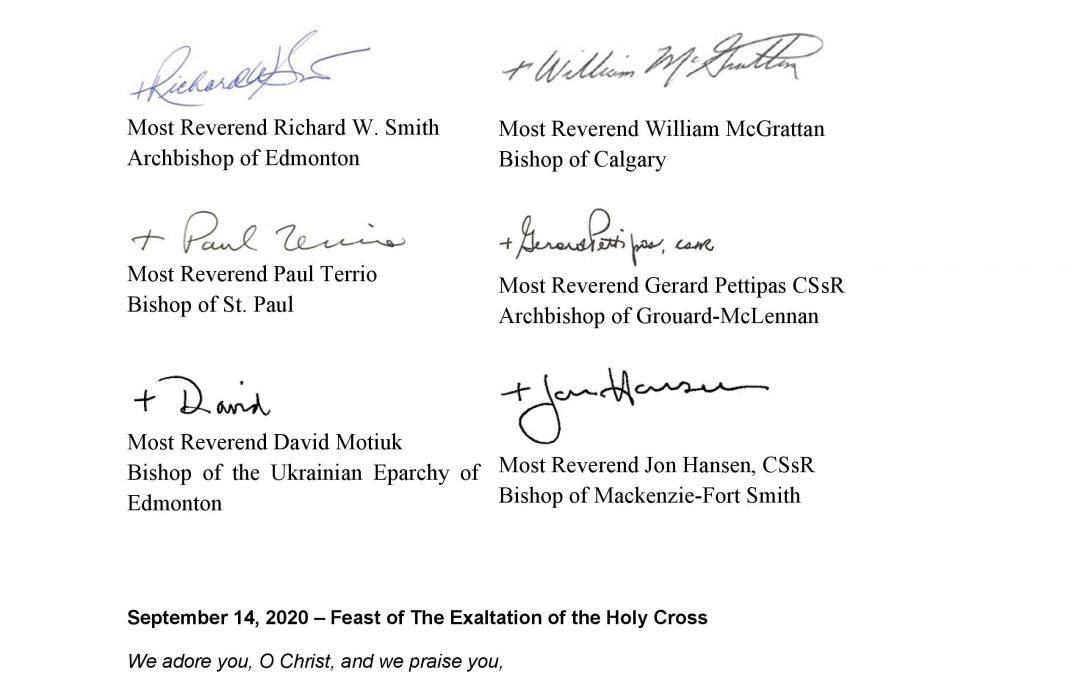 +Richard W Smith
Most Reverend Richard W. Smith
Archbishop of Edmonton
+ William McGrattan
Most Reverend William McGrattan
Bishop of Calgary
+ Paul Terrio
Most Reverend Paul Terrio
Bishop of St. Paul
+ Gerard Pettipas, CSsR
Most Reverend Gerard Pettipas CSsR
Archbishop of Grouard-McLennan
+ David
Most Reverend David Motiuk
Bishop of the Ukrainian Eparchy of
Edmonton
+ Jon Hansen
Most Reverend Jon Hansen, CSsR
Bishop of Mackenzie-Fort Smith
September 14, 2020 – Feast of The Exaltation of the Holy Cross
We adore you, O Christ, and we praise you,